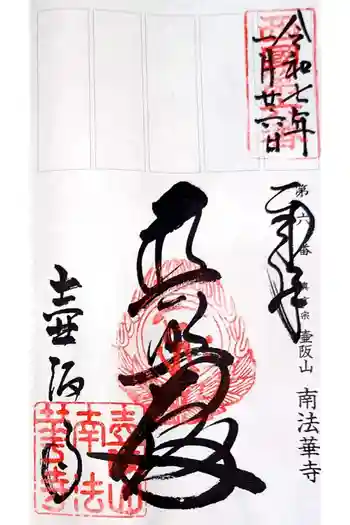 令和七年
一月廿六日
奉拝
第六番 真言宗 壺阪山 南法華寺
普照殿
壺阪寺
壺阪山
南法
華寺